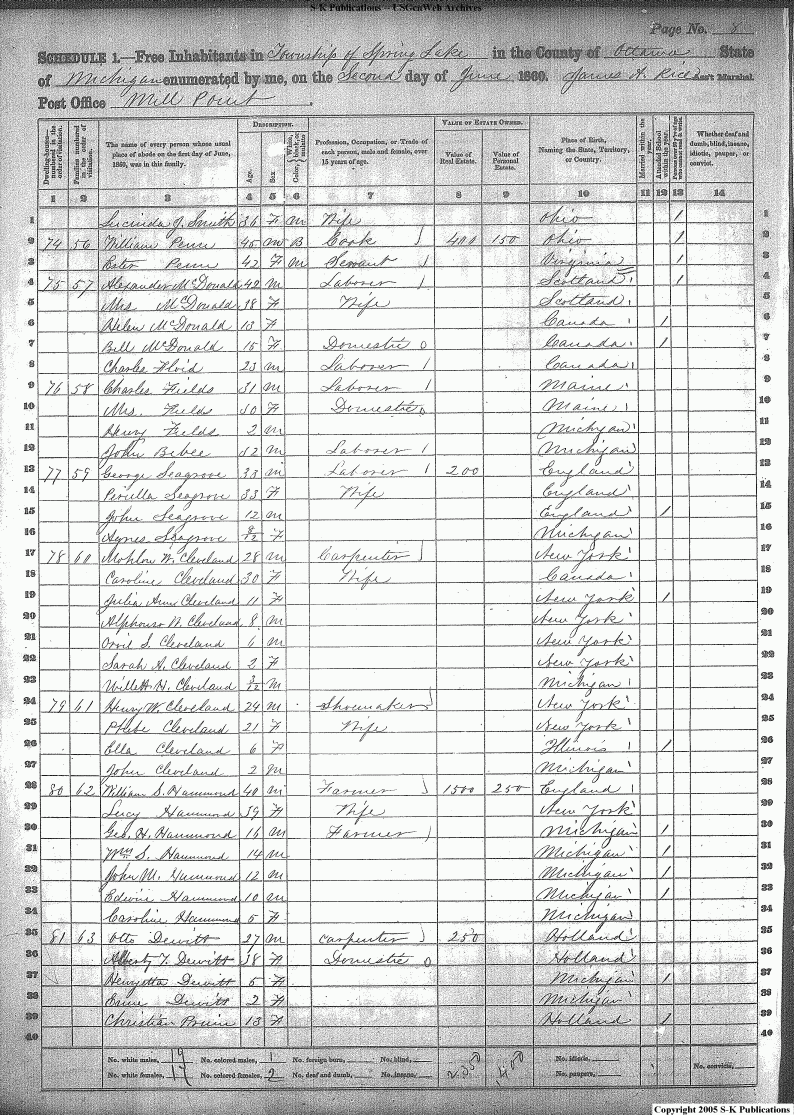 S-K Publications -- USGenWeb Archives
Page No. 8
SCHEDULE 1.—Free Inhabitants in Township of Spring Lake in the County of Ottawa State
of Michigan enumerated by me, on the Second day of June 1860. James A. Rice Ass't Marshal
Post Office Mill Point.
Dwelling-houses numbered in the order of visitation. Families numbered in the order of visitation. The name of every person whose usual place of abode on the first day of June, 1860, was in this family. DESCRIPTION. Age. Sex. Color, White, black, or mulatto. Profession, Occupation, or Trade of each person, male and female, over 15 years of age. VALUE OF ESTATE OWNED. Value of Real Estate. Value of Personal Estate. Place of Birth, Naming the State, Territory, or Country. Married within the year. Attended School within the year. Whether deaf and dumb, blind, insane, idiotic, pauper, or convict.
1 2 3 4 5 6 7 8 9 10 11 12 13 14
1 Lucinda J. Smith 36 F M Wife Ohio / 1
2 74 56 William Penn 45 M B Cook 400 150 Ohio / 2
3 Ester Penn 42 F M Servant Virginia / 3
4 75 57 Alexander McDonald 42 M Laborer Scotland / 4
5 Mrs McDonald 38 F Wife Scotland 5
6 Helen McDonald 13 F Canada / 6
7 Bell McDonald 15 F Domestic 0 Canada / 7
8 Charles Floid 23 M Laborer Canada 8
9 76 58 Charles Fields 31 M Laborer Maine 9
10 Mrs. Fields 30 F Domestic 0 Maine 10
11 Henry Fields 2 M Michigan 11
12 John Bebee 52 M Laborer Michigan 12
13 77 59 George Seagrove 33 M Laborer 200 England 13
14 Pericilla Seagrove 33 F Wife England 14
15 John Seagrove 12 M England / 15
16 Agnes Seagrove 8/12 F Michigan 16
17 78 60 Mohlon W. Cleveland 28 M Carpenter New York 17
18 Caroline Cleveland 30 F Wife Canada 18
19 Julia Ann Cleveland 11 F New York / 19
20 Alphonso W. Cleveland 8 M New York 20
21 Orril S. Cleveland 6 M New York 21
22 Sarah A. Cleveland 2 F New York 22
23 Willett H. Cleveland 3/12 M Michigan 23
24 79 61 Henry W. Cleveland 24 M Shoemaker New York 24
25 Phebe Cleveland 21 F Wife New York 25
26 Ella Cleveland 6 F Illinois / 26
27 John Cleveland 2 M Michigan 27
28 80 62 William S. Hammond 40 M Farmer 1500 250 England 28
29 Lucy Hammond 39 F Wife New York 29
30 Geo. H. Hammond 16 M Farmer Michigan / 30
31 Wm S. Hammond 14 M Michigan / 31
32 John M. Hammond 12 M Michigan / 32
33 Edwin Hammond 10 M Michigan / 33
34 Caroline Hammond 5 F Michigan 34
35 81 63 Otto Dewitt 27 M Carpenter 250 Holland 35
36 Alberty F. Dewitt 38 F Domestic 0 Holland 36
37 Henryetta Dewitt 5 F Michigan / 37
38 Dewitt 2 F Michigan 38
39 Christian 13 F Holland / 39
40 40
No. white males, 19 No. colored males, 1 No. foreign born, No. blind, 2350 400 No. idiotic, No. convicts,
No. white females, 17 No. colored females, 2 No. deaf and dumb, No. insane, No. paupers,
Copyright 2005 S-K Publications